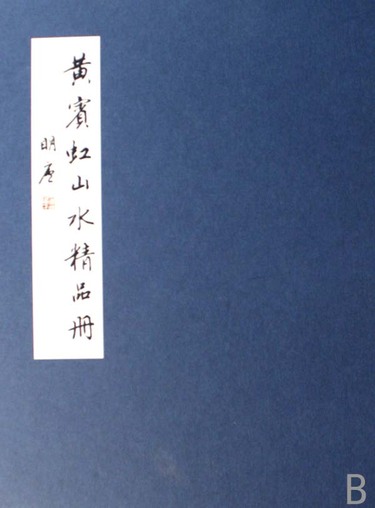 黄賓虹山水精品冊
明
B